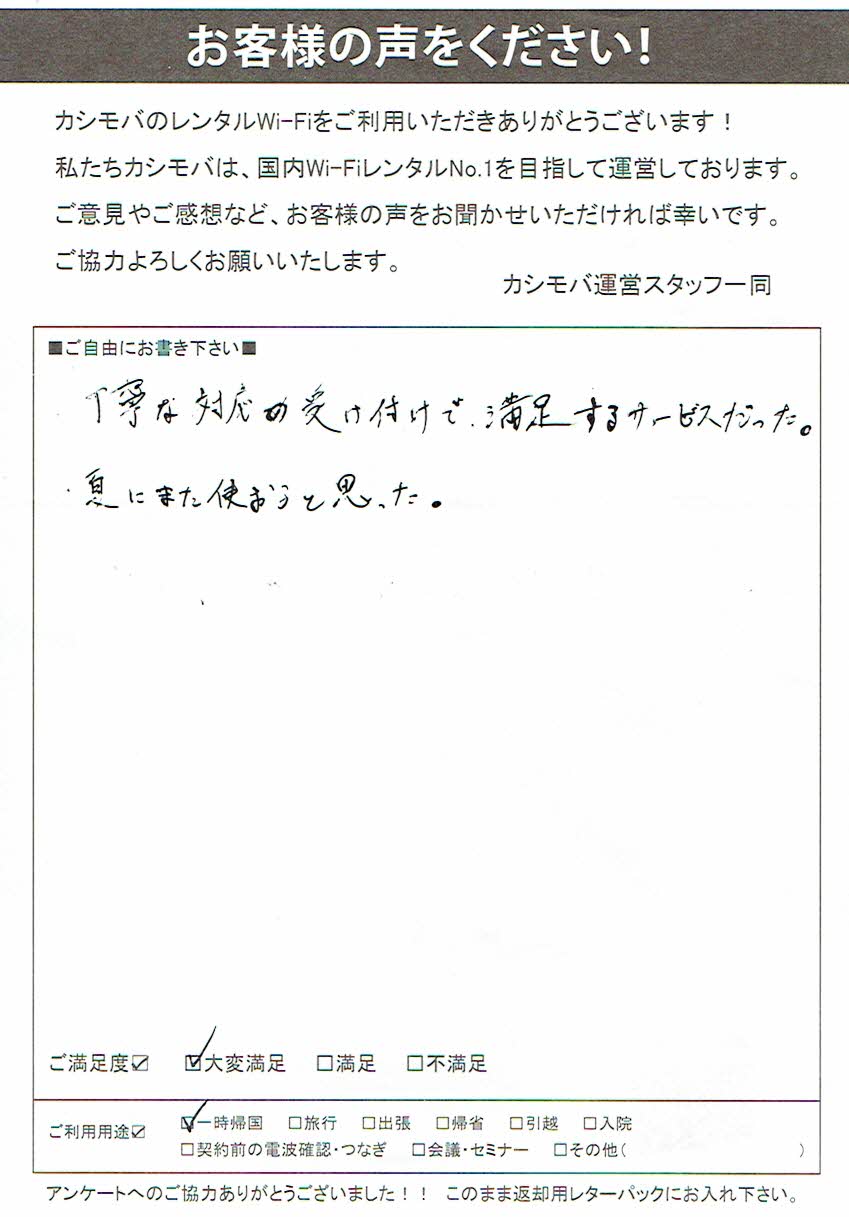 お客様の声をください!
カシモバのレンタルWi-Fiをご利用いただきありがとうございます！
私たちカシモバは、国内Wi-FiレンタルNo.1を目指して運営しております。
ご意見やご感想など、お客様の声をお聞かせいただければ幸いです。
ご協力よろしくお願いいたします。
カシモバ運営スタッフ一同
■ご自由にお書き下さい■
丁寧な対応の受け付けで、満足するサービスだった。
夏にまた使おうと思った。
ご満足度☑ ☑大変満足 □満足 □不満足
ご利用用途☑ ☑一時帰国 □旅行 □出張 □帰省 □引越 □入院
□契約前の電波確認・つなぎ □会議・セミナー □その他( )
アンケートへのご協力ありがとうございました！！ このまま返却用レターパックにお入れ下さい。